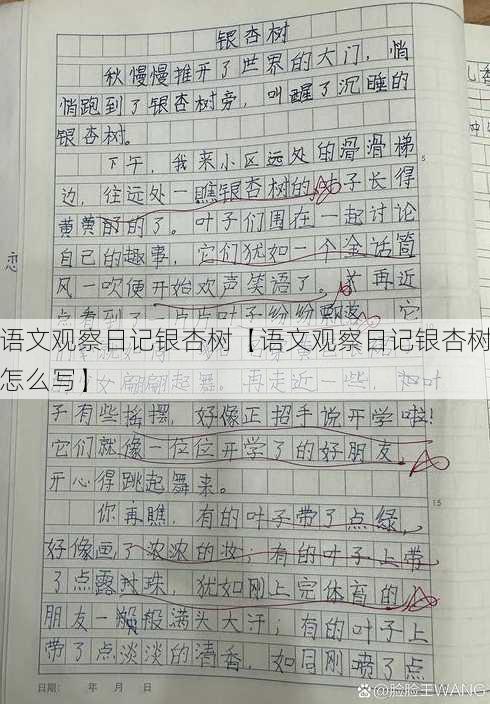 银杏树
秋慢慢推开了世界的大门，悄
悄跑到了银杏树旁，叫醒了沉睡的
银杏树。
下午，我来小区远处的滑滑梯
边，往远处一瞧银杏树的叶子长得
黄黄的了。叶子们围在一起讨论
自己的趣事，它们犹如一个金话筒
风一吹便开始欢声笑语了。再近
点看到了一片片叶子纷纷飘落，它
语文观察日记银杏树【语文观察日记银杏树
怎么写】
翩翩起舞。再走近一些，叶
子有些摇摆，好像正招手说开学啦！
它们就像一位位开学了的好朋友，
开心得跳起舞来。
你再瞧，有的叶子带了点绿，
好像画了浓浓的妆；有的叶子上带
了点露珠，犹如刚上完体育的
朋友一般般满头大汗；有的叶子上
带了点淡淡的清香，如同刚喷了点
5
15
日期： 年 月 日
@脸脸王WANG